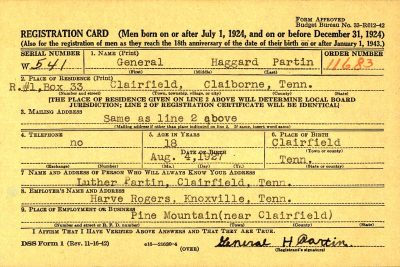 FORM APPROVED
Budget Bureau No. 33-R012-42
REGISTRATION CARD (Men born on or after July 1, 1924, and on or before December 31, 1924)
(Also for the registration of men as they reach the 18th anniversary of the date of their birth on or after January 1, 1943.)
SERIAL NUMBER 1. NAME (Print) ORDER NUMBER
W 541 General Haggard Partin 11683
(First) (Middle) (Last)
2. PLACE OF RESIDENCE (Print)
R.#1, Box 33 Clairfield, Claiborne, Tenn.
(Number and street) (Town, township, village, or city) (County) (State)
[THE PLACE OF RESIDENCE GIVEN ON LINE 2 ABOVE WILL DETERMINE LOCAL BOARD
JURISDICTION; LINE 2 OF REGISTRATION CERTIFICATE WILL BE IDENTICAL]
3. MAILING ADDRESS
Same as line 2 above
(Mailing address if other than place indicated on line 2. If same, insert word same)
4. TELEPHONE 5. AGE IN YEARS 6. PLACE OF BIRTH
no 18 Clairfield
DATE OF BIRTH (Town or county)
Aug. 4,1927 Tenn.
(Exchange) (Number) (Mo.) (Day) (Yr.) (State or country)
7. NAME AND ADDRESS OF PERSON WHO WILL ALWAYS KNOW YOUR ADDRESS
Luther Partin, Clairfield, Tenn.
8. EMPLOYER'S NAME AND ADDRESS
Harve Rogers, Knoxville, Tenn.
9. PLACE OF EMPLOYMENT OR BUSINESS
Pine Mountain(near Clairfield)
(Number and street or R. F. D. number) (Town) (County) (State)
I AFFIRM THAT I HAVE VERIFIED ABOVE ANSWERS AND THAT THEY ARE TRUE.
DSS Form 1 (Rev. 11-16-42) (OVER) General H Partin.
(Registrant's signature)